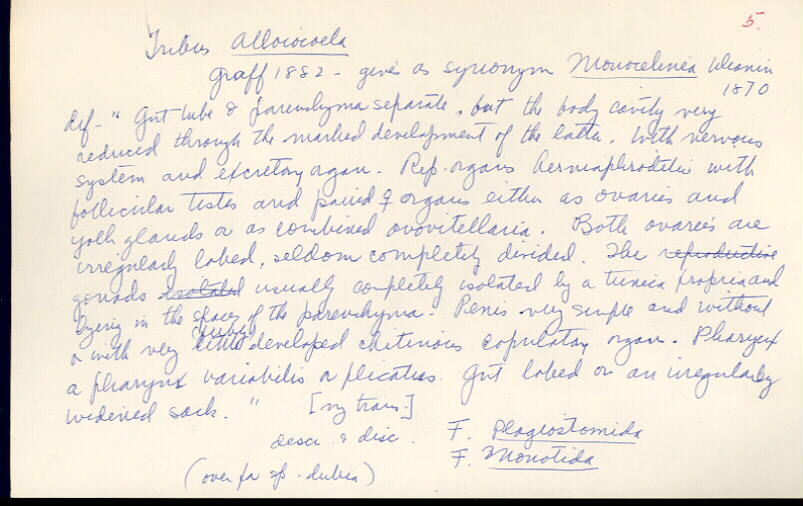 5.
Tribus Alloiocoela
Graff 1882 - gives as synonym Monocelinea Uljanin
1870
def - " Gut tube & parenchyma separate, but the body cavity very
reduced through the marked development of the latter. With nervous
system and excretory organ. Rep. organs hermaphroditic with
follicular testes and paired ♀ organs either as ovaries and
yolk glands or as combined ovovitellaria. Both ovaries are
irregularly lobed, seldom completely divided. The reproductive
gonads isolated usually completely isolated by a tunica propria and
lying in the spaces of the parenchyma. Penis very simple and without
or with very little developed chitinous copulatory organ. Pharynx
a pharynx variabilis or plicatus. Gut lobed or an irregularly
widened sack. " [my trans.]
descr. & disc. F. Plagiostomida
F. Monotida
(over for sp. dubia)